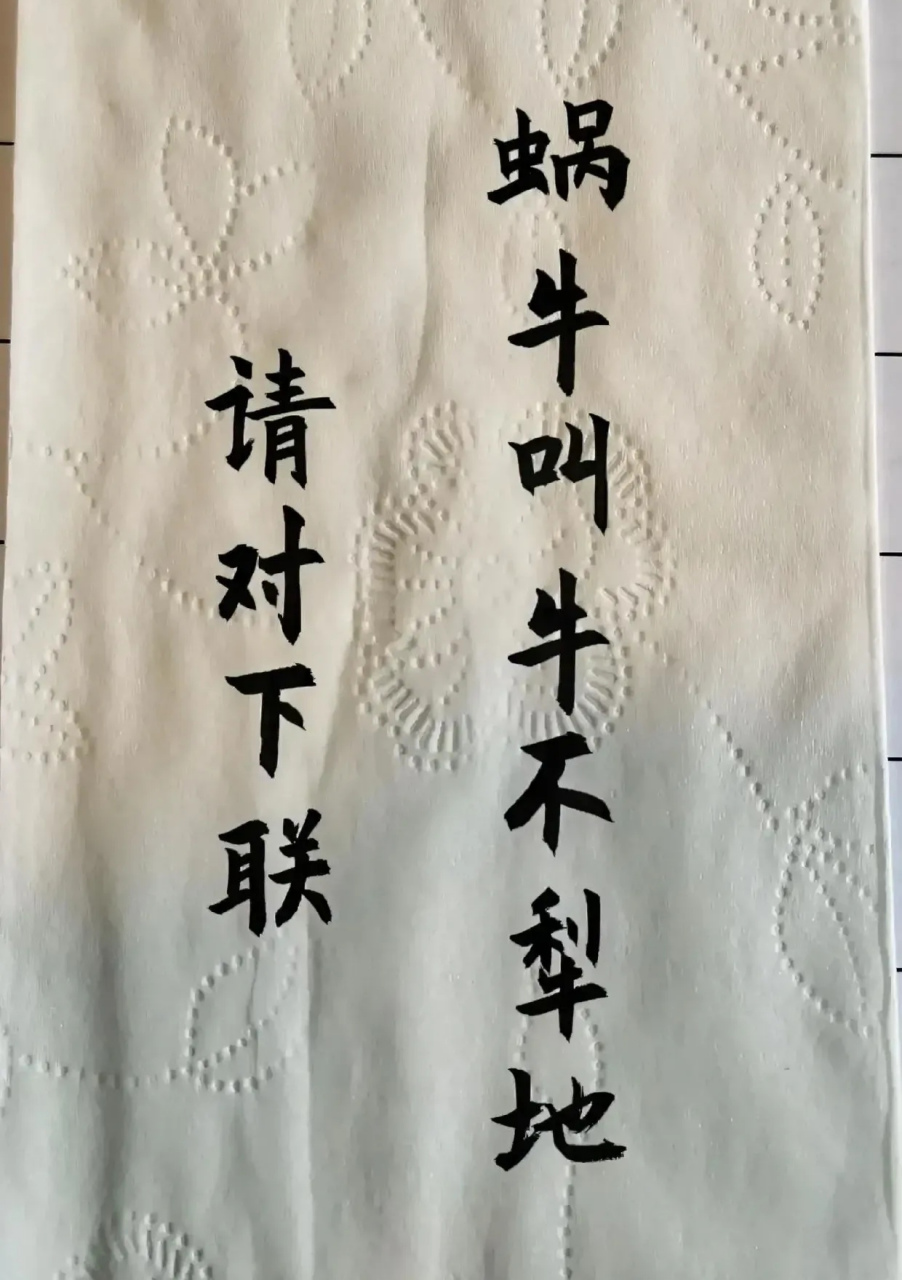 蜗牛叫牛不犁地
请对下联